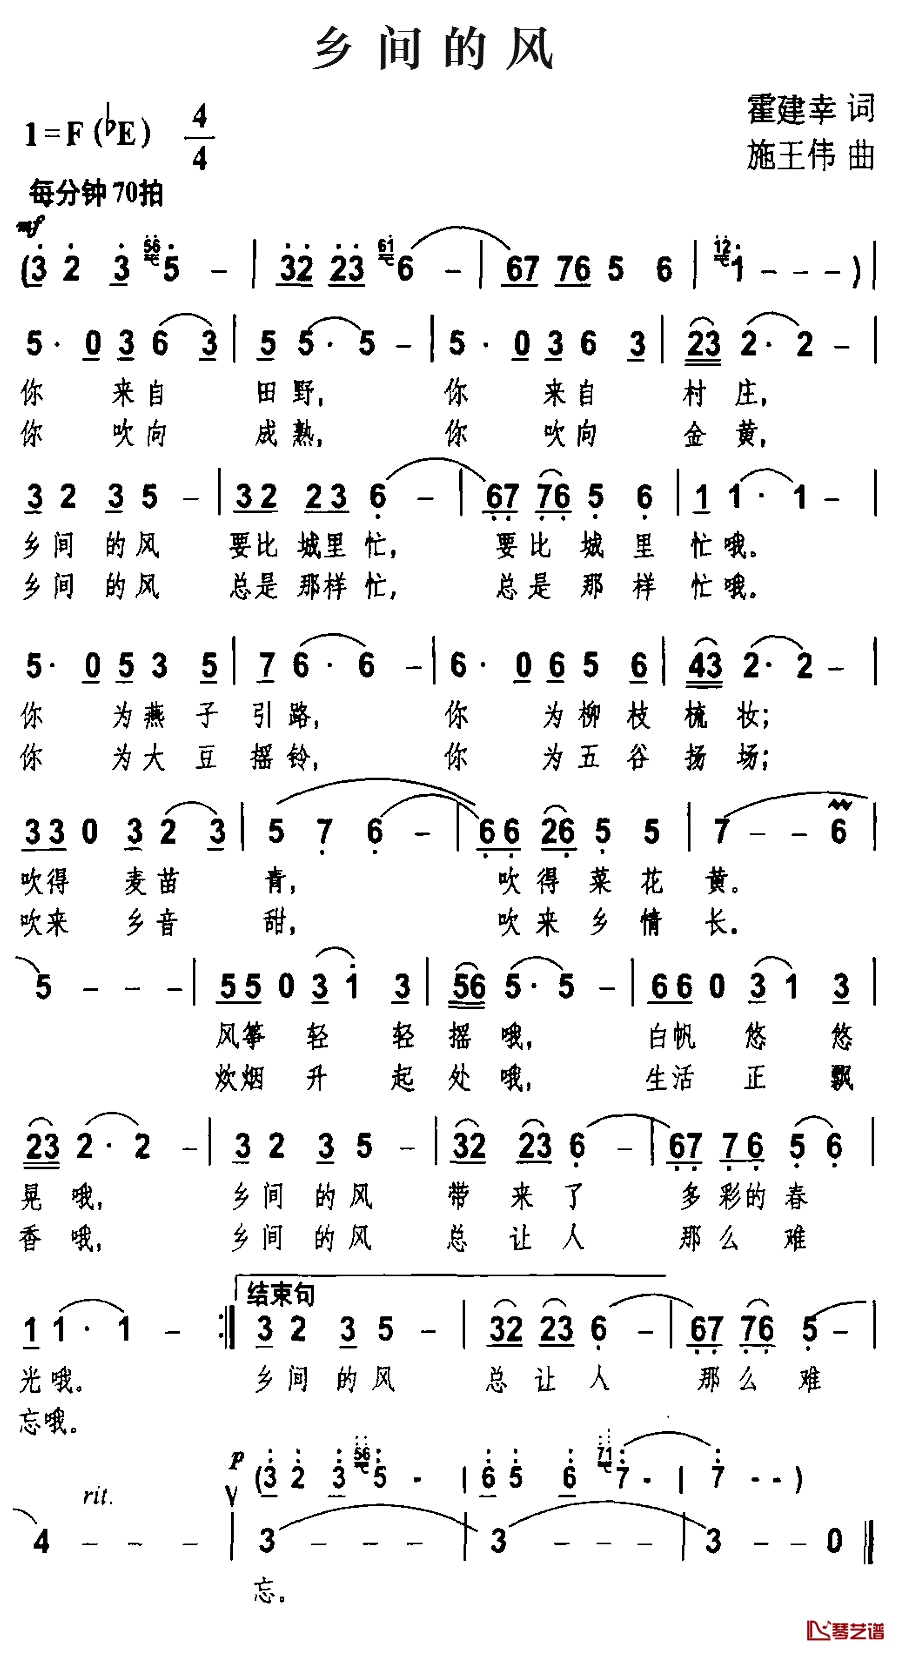 乡间的风
霍建幸 词
1=F(♭E) 4/4
施王伟 曲
每分钟70拍
mf
(3 2 3 56 5 – | 32 23 61 6 – | 67 76 5 6 | 12 1 – – –)|
5· 0 3 6 3 | 5 5· 5 – | 5· 0 3 6 3 | 23 2· 2 – |
你 来自 田野, 你 来自 村庄,
你 吹向 成熟, 你 吹向 金黄,
3 2 3 5 – | 32 23 6 – | 67 76 5 6 | 1 1· 1 – |
乡间 的风 要比 城里忙, 要比 城里 忙哦。
乡间 的风 总是 那样忙, 总是 那样 忙哦。
5· 0 5 3 5 | 7 6· 6 – | 6· 0 6 5 6 | 43 2· 2 – |
你 为燕子 引路, 你 为柳枝 梳妆;
你 为大豆 摇铃, 你 为五谷 扬场;
3 3 0 3 2 3 | 5 7 6 – | 6 6 26 5 5 | 7 – – 6 |
吹得 麦苗 青, 吹得菜花 黄。
吹来 乡音 甜, 吹来乡情 长。
5 – – – | 5 5 0 3 1 3 | 56 5· 5 – | 6 6 0 3 1 3 |
风筝 轻 轻 摇哦, 白帆 悠 悠
炊烟 升 起 处哦, 生活 正 飘
23 2· 2 – | 3 2 3 5 – | 32 23 6 – | 67 7 6 5 6 |
晃哦, 乡间 的风 带来了 多彩的春
香哦, 乡间 的风 总让人 那么 难
结束句
1 1· 1 – :| 3 2 3 5 – | 32 23 6 – | 67 76 5 – |
光哦。 乡间 的风 总让人 那么 难
忘哦。
p (3 2 3 56 5 - | 6 5 6 71 7 - - | 7 - - )
rit.
4 – – – | 3 – – – | 3 – – – | 3 – – 0 ‖
忘。
琴艺谱